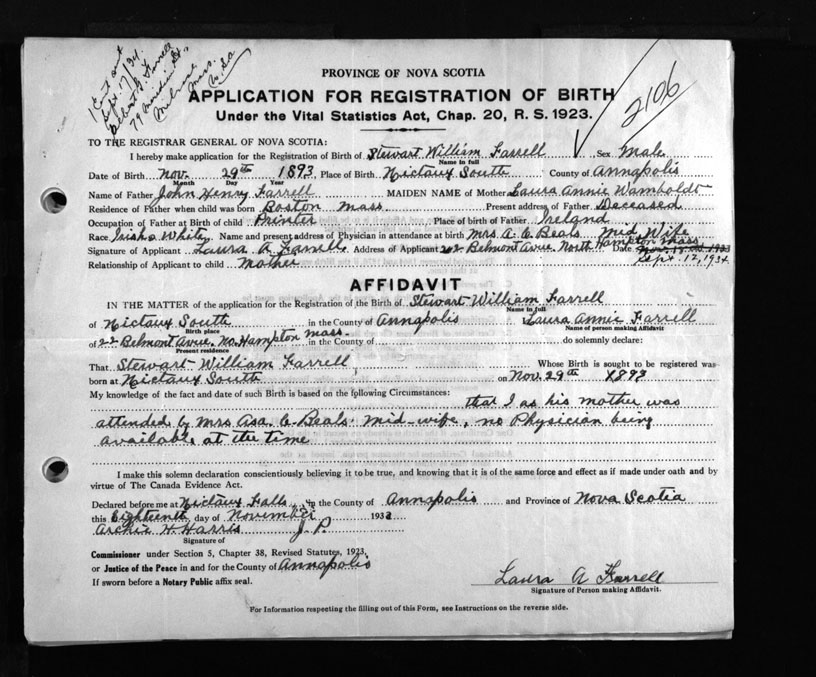 1 Cert out
Sept. 7/34.
Albert G. Farrell
79
Melrose
Mass.
U. Sa
2106
PROVINCE OF NOVA SCOTIA
APPLICATION FOR REGISTRATION OF BIRTH
Under the Vital Statistics Act, Chap. 20, R. S. 1923.
TO THE REGISTRAR GENERAL OF NOVA SCOTIA:
I hereby make application for the Registration of Birth of Stewart William Farrell Sex Male
Name in full
Date of Birth Nov. 29th 1893 Place of Birth Nictaux South County of Annapolis
Month Day Year
Name of Father John Henry Farrell MAIDEN NAME of Mother Laura Annie Wamboldt
Residence of Father when child was born Boston Mass Present address of Father Deceased
Occupation of Father at Birth of child Printer Place of birth of Father Ireland
Race Irish White Name and present address of Physician in attendance at birth Mrs A. C Beals Mid Wife
Signature of Applicant Laura A Farrell Address of Applicant 22 Belmont Avue. North Hampton Mass Date Nov. 18th 1933
Sept. 12, 1934
Relationship of Applicant to child Mother
AFFIDAVIT
IN THE MATTER of the application for the Registration of the Birth of Stewart William Farrell
Name in full
of Nictaux South in the County of Annapolis Laura Annie Farrell
Birth place Name of person making Affidavit
of 22 Belmont Avue. No. Hampton Mass. in the County of do solemnly declare:
Present residence
That Stewart William Farrell Whose Birth is sought to be registered was
born at Nictaux South on Nov. 29th 1893
My knowledge of the fact and date of such Birth is based on the following Circumstances: that I as his mother was
attended by Mrs Asa. C. Beals. mid-wife, no Physician being
available at the time
I make this solemn declaration conscientiously believing it to be true, and knowing that it is of the same force and effect as if made under oath and by
virtue of The Canada Evidence Act.
Declared before me at Nictaux Falls in the County of Annapolis and Province of Nova Scotia
this Eighteenth day of November 1933
Archie H Harris J. P.
Signature of
Commissioner under Section 5, Chapter 38, Revised Statutes, 1923,
or Justice of the Peace in and for the County of Annapolis
If sworn before a Notary Public affix seal.
Laura A Farrell
Signature of Person making Affidavit.
For Information respecting the filling out of this Form, see Instructions on the reverse side.